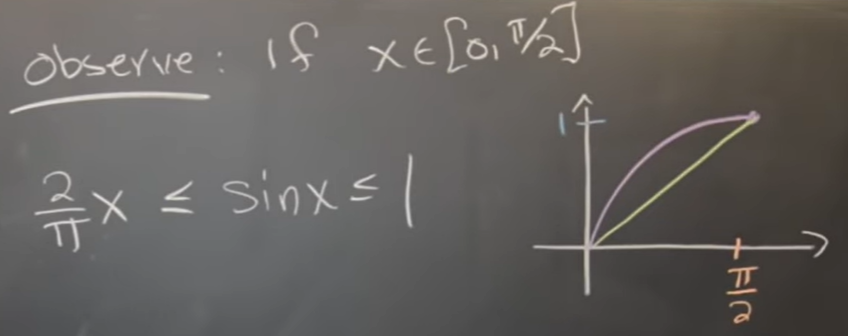 observe: if x∈[0,π/2]
2/π x ≤ sinx ≤ 1
1
π/2